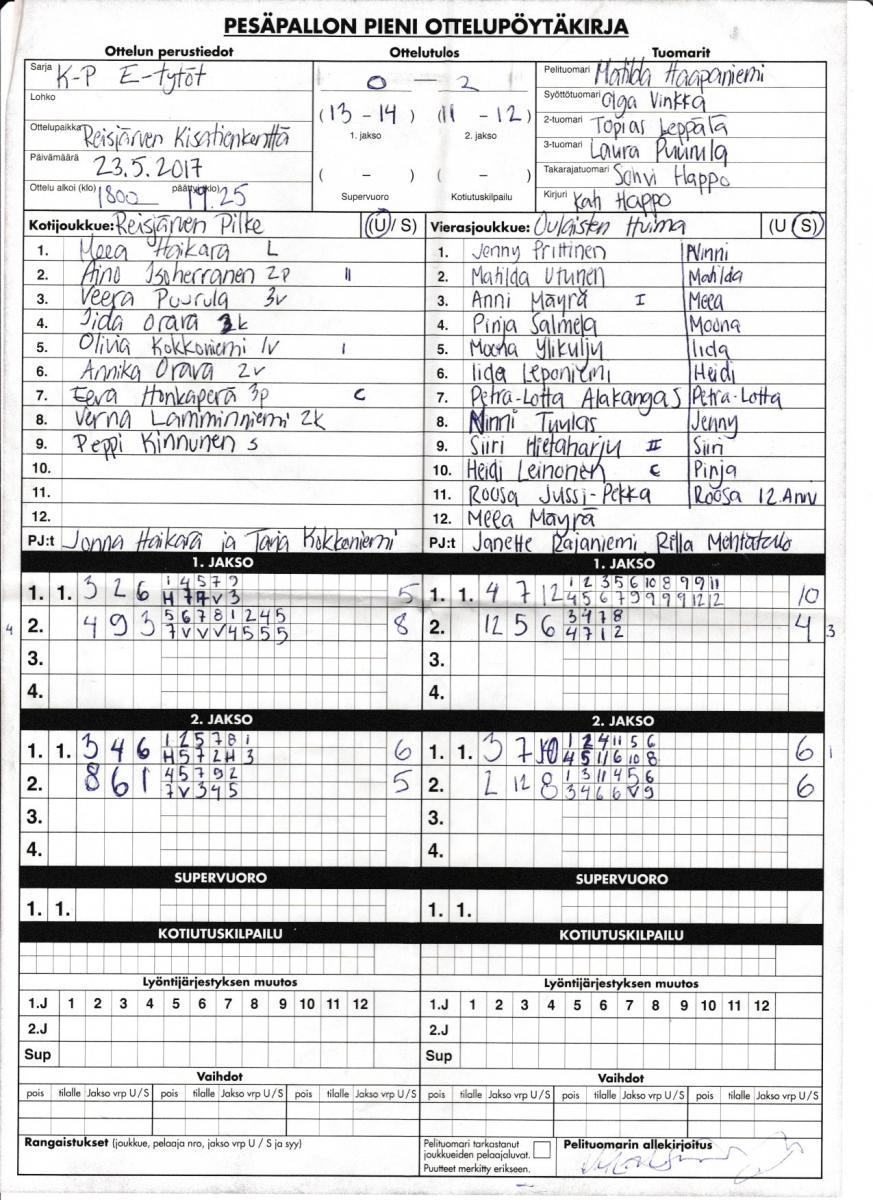 PESÄPALLON PIENI OTTELUPÖYTÄKIRJA
Ottelun perustiedot Ottelutulos Tuomarit
Sarja K-P E-tytöt
Lohko
Ottelupaikka Reisjärven Kisatienkenttä
Päivämäärä 23.5.2017
Ottelu alkoi (klo) 1800 päättyi (klo) 19.25
0 — 2
(13 - 14) (11 - 12)
1. jakso 2. jakso
( - ) ( - )
Supervuoro Kotiutuskilpailu
Pelituomari Matilda Haapaniemi
Syöttötuomari Olga Vinkka
2-tuomari Topias Leppälä
3-tuomari Laura Puurula
Takarajatuomari Sohvi Happo
Kirjuri Kati Happo
Kotijoukkue: Reisjärven Pilke (U / S)
1. Meea Haikara L
2. Aino Isoherranen 2p II
3. Veera Puurula 3v
4. Iida Orava 3k
5. Olivia Kokkoniemi 1v I
6. Annika Orava 2v
7. Eeva Honkaperä 3p C
8. Verna Lamminniemi 2k
9. Peppi Kinnunen s
10.
11.
12.
PJ:t Jonna Haikara ja Tarja Kokkoniemi
Vierasjoukkue: Oulaisten Huima (U / S)
1. Jenny Prittinen Ninni
2. Matilda Utunen Matilda
3. Anni Mäyrä I Meea
4. Pinja Salmela Moona
5. Moona Ylikulju Iida
6. Iida Leponiemi Heidi
7. Petra-Lotta Alakangas Petra-Lotta
8. Ninni Tuulas Jenny
9. Siiri Hietaharju II Siiri
10. Heidi Leinonen C Pinja
11. Roosa Jussi-Pekka Roosa 12. Anni
12. Meea Mäyrä
PJ:t Janette Rajaniemi Rilla
1. JAKSO
1. 1. 3 2 6 1 4 5 7 9 5
2. 4 9 3 5 6 7 8 1 2 4 5 8
7 V V V 4 5 5 5
4
3.
4.
1. JAKSO
1. 1. 4 7 12 1 2 3 5 6 10 8 9 9 11 10
4 5 6 7 9 9 9 9 12 12
2. 12 5 6 3 4 7 8 4
4 7 1 2
3
3.
4.
2. JAKSO
1. 1. 3 4 6 1 2 5 7 8 1 6
H 5 7 2 H 3
2. 8 6 1 4 5 7 9 2 5
7 V 3 4 5
3.
4.
2. JAKSO
1. 1. 3 7 10 1 2 4 11 5 6 6
4 5 11 6 10 8
1
2. 2 12 8 1 3 11 4 5 6 6
3 4 6 6 V 9
3.
4.
SUPERVUORO SUPERVUORO
1. 1. 1. 1.
KOTIUTUSKILPAILU KOTIUTUSKILPAILU
Lyöntijärjestyksen muutos Lyöntijärjestyksen muutos
1.J 1 2 3 4 5 6 7 8 9 10 11 12 1.J 1 2 3 4 5 6 7 8 9 10 11 12
2.J 2.J
Sup Sup
Vaihdot Vaihdot
pois tilalle Jakso vrp U/S pois tilalle Jakso vrp U/S pois tilalle Jakso vrp U/S pois tilalle Jakso vrp U/S pois tilalle Jakso vrp U/S pois tilalle Jakso vrp U/S
Rangaistukset (joukkue, pelaaja nro, jakso vrp U / S ja syy)
Pelituomari tarkastanut
joukkueiden pelaajaluvat.
Puutteet merkitty erikseen.
Pelituomarin allekirjoitus